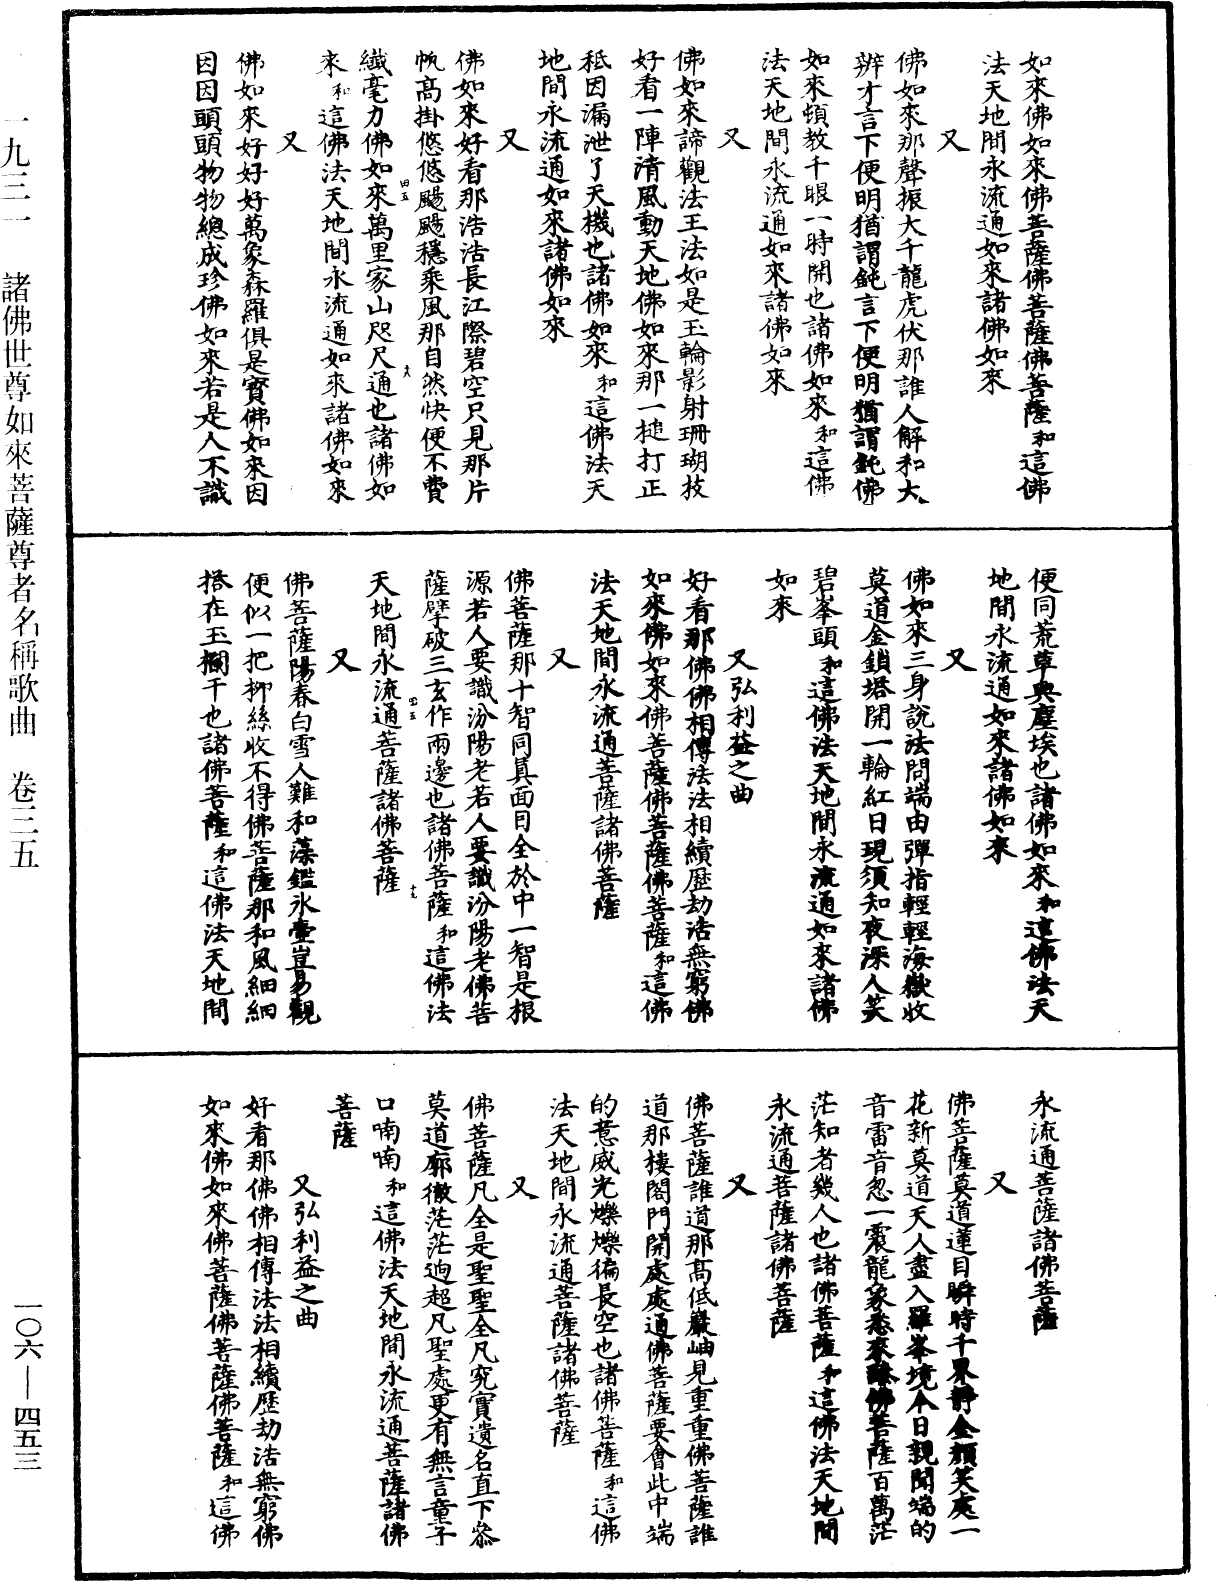 如來佛如來佛菩薩佛菩薩佛菩薩和這佛
法天地間永流通如來諸佛如來
又
佛如來那聲振大千龍虎伏那誰人解和大
辨才言下便明猶謂鈍言下便明猶謂鈍佛
如來頓教千眼一時開也諸佛如來和這佛
法天地間永流通如來諸佛如來
又
佛如來諦觀法王法如是玉輪影射珊瑚技
好看一陣清風動天地佛如來那一槌打正
秪因漏泄了天機也諸佛如來和這佛法天
地間永流通如來諸佛如來
又
佛如來好看那浩浩長江際碧空只見那片
帆高掛悠悠颺颺穩乘風那自然快便不費
纖毫力佛如來萬里家山咫尺通也諸佛如
來和這佛法天地間永流通如來諸佛如來
又
佛如來好好好萬象森羅俱是寶佛如來因
因因頭頭物物總成珍佛如來若是人不識
便同荒草與塵埃也諸佛如來和這佛法天
地間永流通如來諸佛如來
又
佛如來三身說法問端由彈指輕輕海嶽收
莫道金鎖塔開一輪紅日現須知夜深人笑
碧峯頭和這佛法天地間永流通如來諸佛
如來
又弘利益之曲
好看那佛佛相傳法法相續歷劫活無窮佛
如來佛如來佛菩薩佛菩薩佛菩薩和這佛
法天地間永流通菩薩諸佛菩薩
又
佛菩薩那十智同真面目全於中一智是根
源若人要識汾陽老若人要識汾陽老佛菩
薩擘破三玄作兩邊也諸佛菩薩和這佛法
天地間永流通菩薩諸佛菩薩
又
佛菩薩陽春白雪人難和藻鑑氷壷豈易觀
便似一把柳絲收不得佛菩薩那和風細細
搭在玉欄干也諸佛菩薩和這佛法天地間
永流通菩薩諸佛菩薩
又
佛菩薩莫道蓮目瞬時千界靜金顏笑處一
花新莫道天人盡入羅峯境今日親聞端的
音雷音忽一震龍象悉來臻佛菩薩百萬茫
茫知者幾人也諸佛菩薩和這佛法天地間
永流通菩薩諸佛菩薩
又
佛菩薩誰道那高低巖岫見重重佛菩薩誰
道那樓閣門開處處通佛菩薩要會此中端
的意威光爍爍徧長空也諸佛菩薩和這佛
法天地間永流通菩薩諸佛菩薩
又
佛菩薩凡全是聖聖全凡究實遺名直下叅
莫道廓徹茫茫逈超凡聖處更有無言童子
口喃喃和這佛法天地間永流通菩薩諸佛
菩薩
又弘利益之曲
好看那佛佛相傳法法相續歷劫活無窮佛
如來佛如來佛菩薩佛菩薩佛菩薩和這佛
一九三一 諸佛世尊如來菩薩尊者名稱歌曲 卷三五
一〇六—四五三